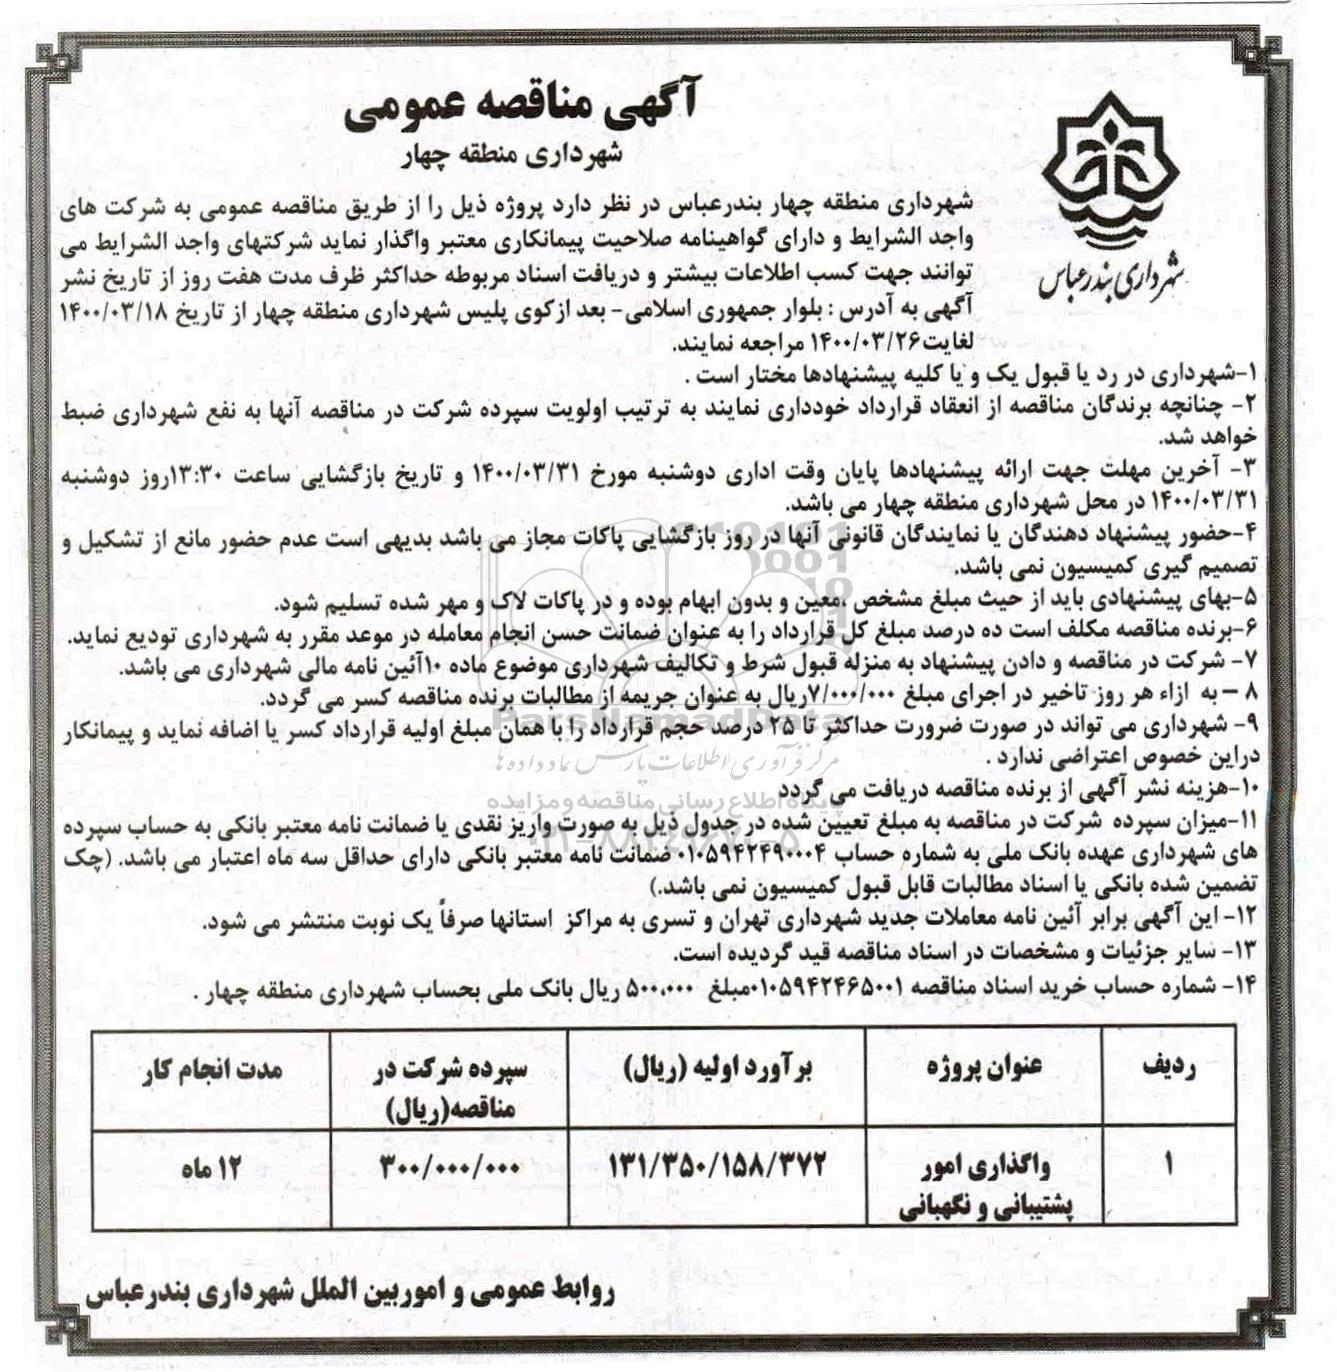 آگهی مناقصه عمومی
شهرداری منطقه چهار
شهرداری بندرعباس
شهرداری منطقه چهار بندرعباس در نظر دارد پروژه ذیل را از طریق مناقصه عمومی به شرکت های
واجد الشرایط و دارای گواهینامه صلاحیت پیمانکاری معتبر واگذار نماید شرکتهای واجد الشرایط می
توانند جهت کسب اطلاعات بیشتر و دریافت اسناد مربوطه حداکثر ظرف مدت هفت روز از تاریخ نشر
آگهی به آدرس : بلوار جمهوری اسلامی- بعد ازکوی پلیس شهرداری منطقه چهار از تاریخ ۱۴۰۰/۰۳/۱۸
لغایت۱۴۰۰/۰۳/۲۶ مراجعه نمایند.
۱-شهرداری در رد یا قبول یک و یا کلیه پیشنهادها مختار است .
۲- چنانچه برندگان مناقصه از انعقاد قرارداد خودداری نمایند به ترتیب اولویت سپرده شرکت در مناقصه آنها به نفع شهرداری ضبط
خواهد شد.
۳- آخرین مهلت جهت ارائه پیشنهادها پایان وقت اداری دوشنبه مورخ ۱۴۰۰/۰۳/۳۱ و تاریخ بازگشایی ساعت ۱۳:۳۰روز دوشنبه
۱۴۰۰/۰۳/۳۱ در محل شهرداری منطقه چهار می باشد.
۴-حضور پیشنهاد دهندگان یا نمایندگان قانونی آنها در روز بازگشایی پاکات مجاز می باشد بدیهی است عدم حضور مانع از تشکیل و
تصمیم گیری کمیسیون نمی باشد.
۵-بهای پیشنهادی باید از حیث مبلغ مشخص ،معین و بدون ابهام بوده و در پاکات لاک و مهر شده تسلیم شود.
۶-برنده مناقصه مکلف است ده درصد مبلغ کل قرارداد را به عنوان ضمانت حسن انجام معامله در موعد مقرر به شهرداری تودیع نماید.
۷- شرکت در مناقصه و دادن پیشنهاد به منزله قبول شرط و تکالیف شهرداری موضوع ماده ۱۰آئین نامه مالی شهرداری می باشد.
۸ – به ازاء هر روز تاخیر در اجرای مبلغ ۷/۰۰۰/۰۰۰ریال به عنوان جریمه از مطالبات برنده مناقصه کسر می گردد.
ParsNamadData
۹- شهرداری می تواند در صورت ضرورت حداکثر تا ۲۵ درصد حجم قرارداد را با همان مبلغ اولیه قرارداد کسر یا اضافه نماید و پیمانکار
دراین خصوص اعتراضی ندارد .
مرکز فرآوری اطلاعات پارس نماد داده ها
۱۰-هزینه نشر آگهی از برنده مناقصه دریافت می گردد
پایگاه اطلاع رسانی مناقصه و مزایده
۱۱-میزان سپرده شرکت در مناقصه به مبلغ تعیین شده در جدول ذیل به صورت واریز نقدی یا ضمانت نامه معتبر بانکی به حساب سپرده
های شهرداری عهده بانک ملی به شماره حساب ۰۱۰۵۹۴۲۴۹۰۰۰۴ ضمانت نامه معتبر بانکی دارای حداقل سه ماه اعتبار می باشد. (چک
تضمین شده بانکی یا اسناد مطالبات قابل قبول کمیسیون نمی باشد.)
۱۲- این آگهی برابر آئین نامه معاملات جدید شهرداری تهران و تسری به مراکز استانها صرفاً یک نوبت منتشر می شود.
۱۳- سایر جزئیات و مشخصات در اسناد مناقصه قید گردیده است.
۱۴- شماره حساب خرید اسناد مناقصه ۰۱۰۵۹۴۲۴۶۵۰۰۱مبلغ ۵۰۰،۰۰۰ ریال بانک ملی بحساب شهرداری منطقه چهار .
ردیف عنوان پروژه برآورد اولیه (ریال) سپرده شرکت در مناقصه(ریال) مدت انجام کار
۱ واگذاری امور پشتیبانی و نگهبانی ۱۳۱/۳۵۰/۱۵۸/۳۷۲ ۳۰۰/۰۰۰/۰۰۰ ۱۲ ماه
روابط عمومی و اموربین الملل شهرداری بندرعباس